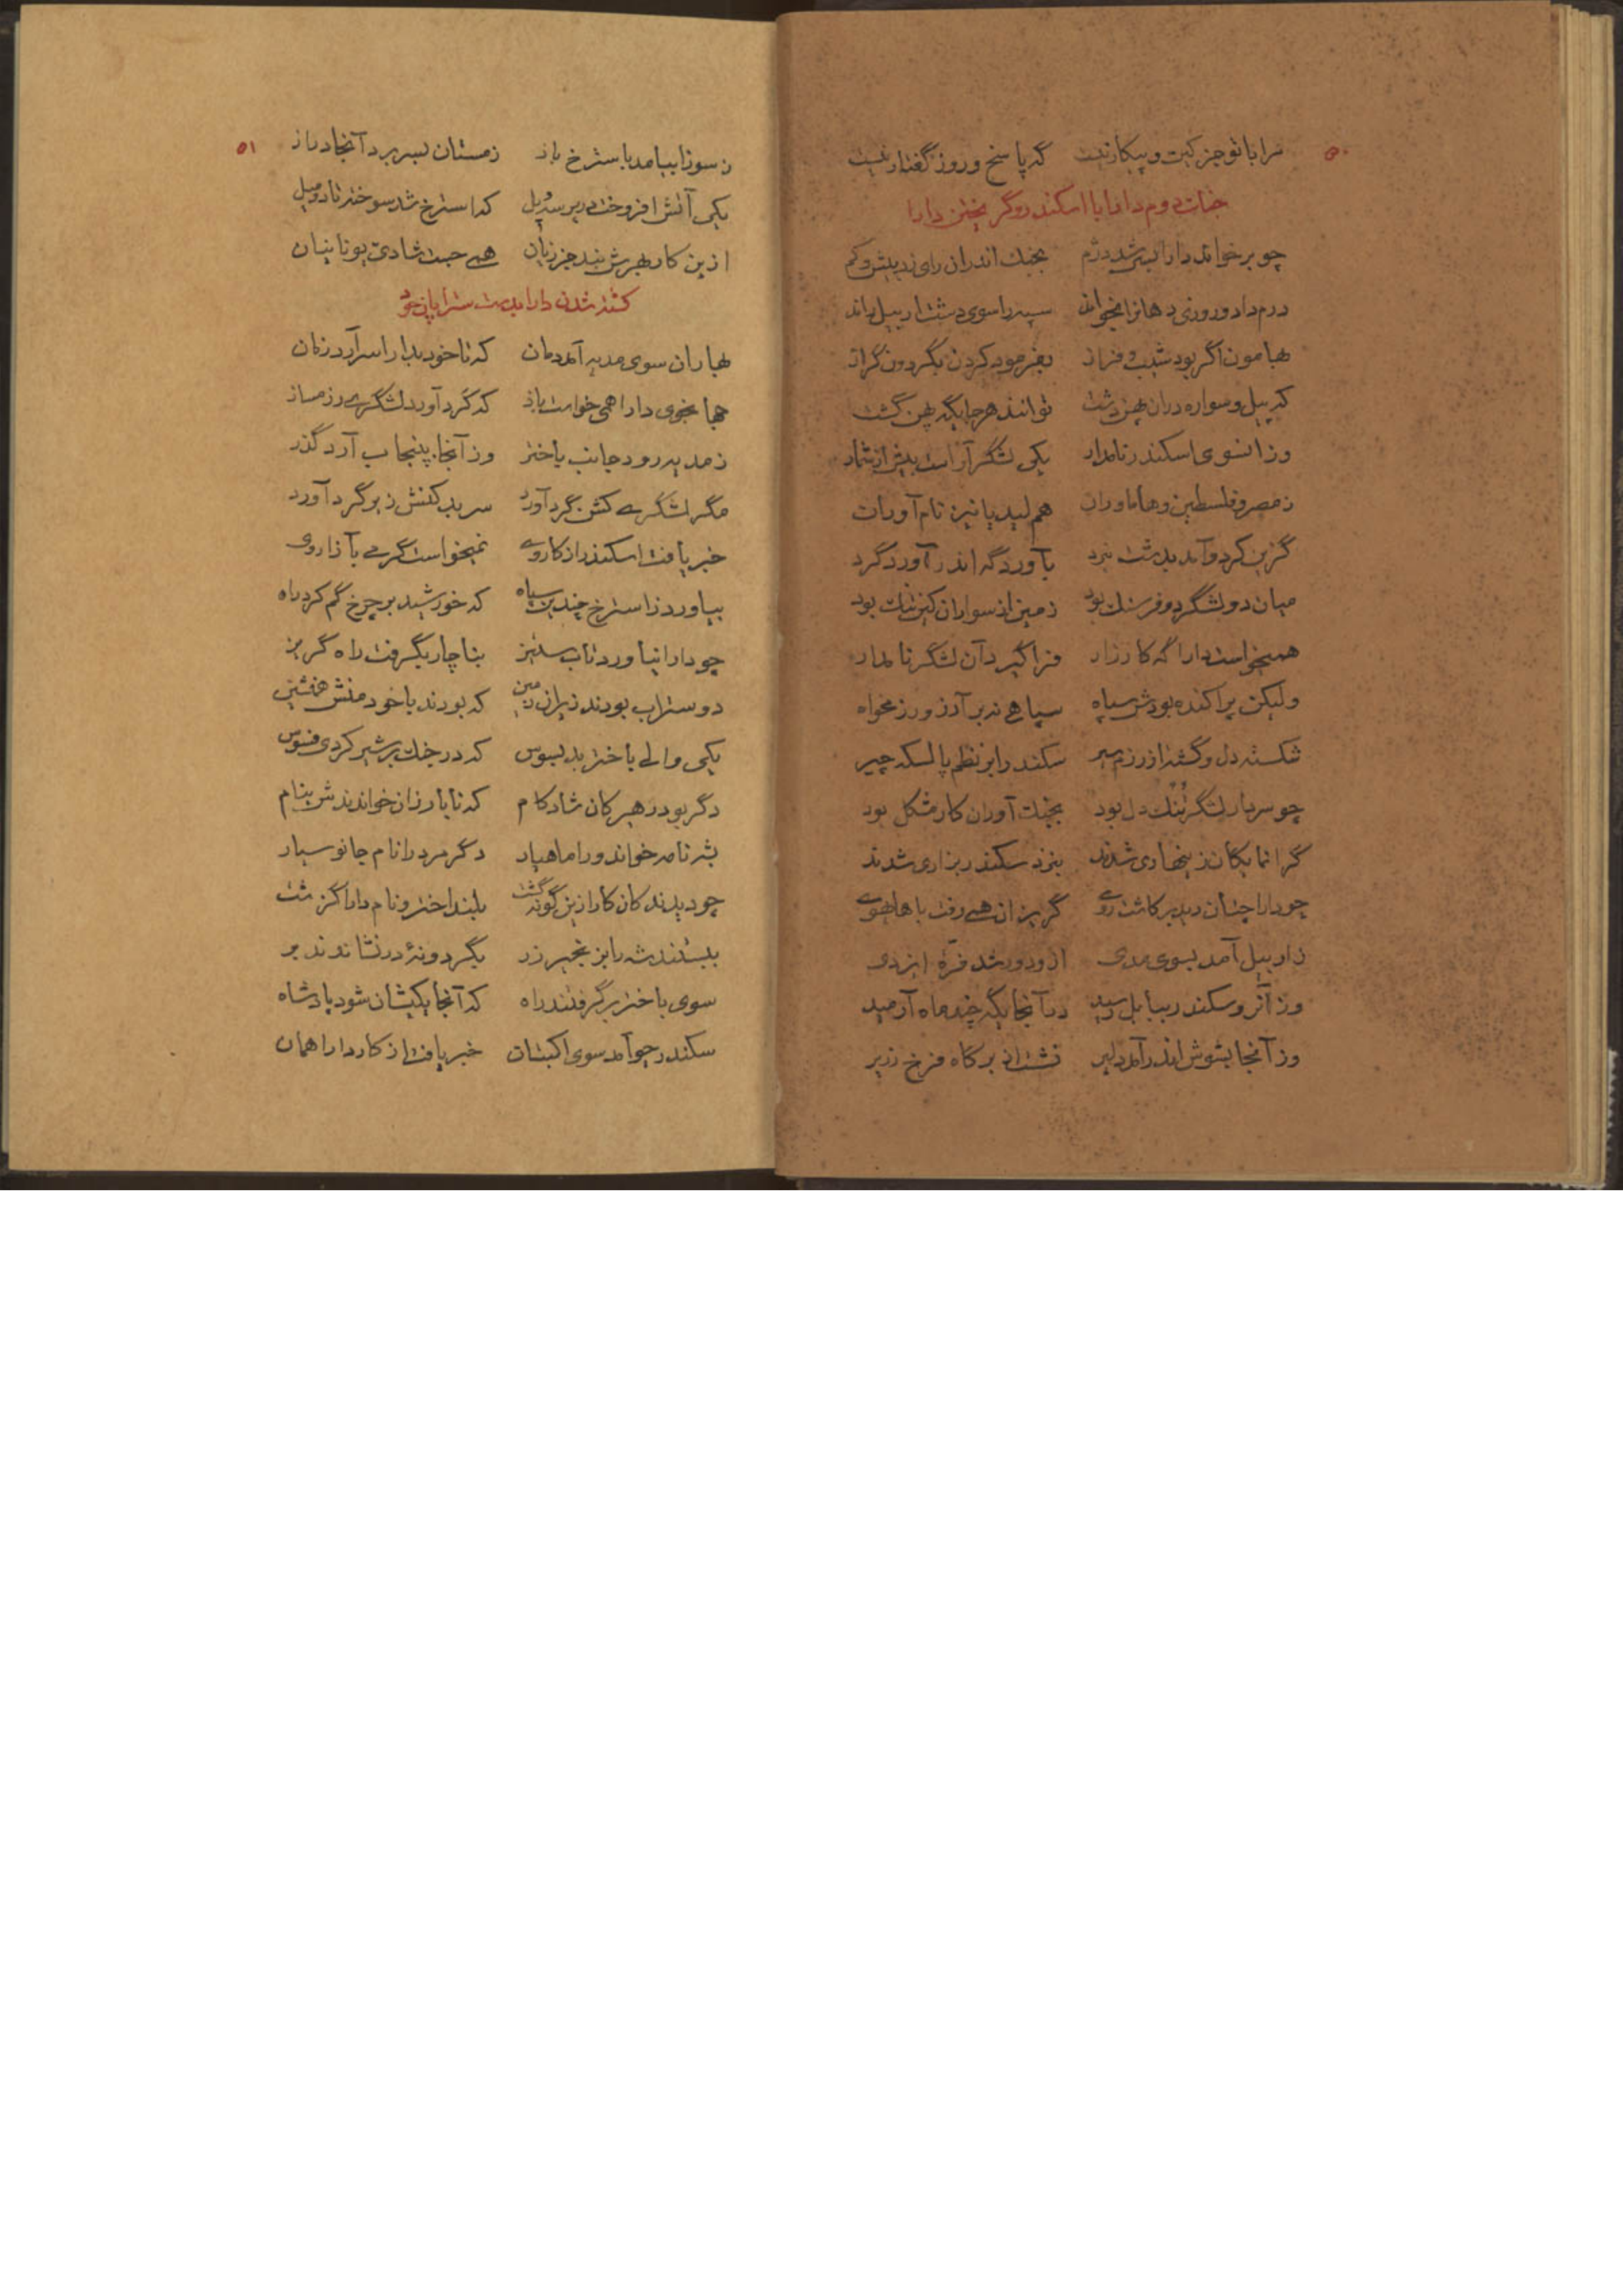 ۵۰
مرا با تو جز کیت و پیکار نیست که پاسخ و روز گفتار نیست
جنگ دوم دارا با اسکندر و گریختن دارا
چو برخواند دارا بسی شد دژم بجنگ اندران رای زد بیش و کم
درم داد و روزی دهانرا بخواند سپه را سوی دشت اربیل راند
بهامون اگر بود شیب و فراز بفرمود کردن بگردون گراز
که پیل و سواره دران پهن دشت توانند هر جایگه پهن گشت
وزانسوی اسکندر نامدار یکی لشگر آراست بیش از شمار
ز مصر و فلسطین و هاماوران هم لیدیا نیز نام آوران
گزین کرد و آمد بدشت نبرد بآوردگه اندر آورد گرد
میان دو لشگر دو فرسنگ بود زمین از سواران کین تنگ بود
همیخواست دارا گه کارزار فرا گیرد آن لشگر نامدار
ولیکن پراکنده بودش سپاه سپاهی نه بر آرزو رزمخواه
شکسته دل و گشته از رزم سیر سکندر ابر نظم پالسکه چیر
چو سردار لشگر تنک دل بود بجنگ آوران کار مشکل بود
گرانمایگان زینهاری شدند بنزد سکندر بزاری شدند
چو دارا چنان دید برکاشت روی گریزان همی رفت با های هوی
ز اربیل آمد بسوی مدی ازو دور شد فرّهٔ ایزدی
وز آنرو سکندر ببابل رسید در آنجایگه چند ماه آرمید
وز آنجا بشوش اندر آمد دلیر نشست از بر گاه فرخ زریر
۵۱
ز سوزا بیامد باسترخ باز زمستان بسر برد آنجا دراز
یکی آتش افروخت در پرسه پل که استرخ شد سوخته تا دو میل
ازین کار بهرش نبد جز زیان همی جست شادی یونانیان
کشته شدن دارا بدست ستراپان خود
بهاران سوی مدیه آمد دمان که تا خود بدارا سرآرد زمان
جهانجوی دارا همی خواست باز که گرد آورد لشگری رزمساز
ز مدیه رود جانب باختر وز آنجا به پنجاب آرد گذر
مگر لشگری کشن گرد آورد سر بدکنش زیر گرد آورد
خبر یافت اسکندر از کار وی نمیخواست گرمی بآزار وی
بیاورد ز استرخ چندین سپاه که خورشید بر چرخ گم کرد راه
چو دارا نیاورد تاب ستیز بناچار بگرفت راه گریز
دو ستراب بودند ز ایران زمین که بودند با خود منش همنشین
یکی والی باختر بد بسوس که در جنگ بر شیر کردی فسوس
دگر بود در هیرکان شادکام که نابارزان خواندندش بنام
بشهنامه خواند ورا ماهیار دگر مرد را نام جانوسیار
چو دیدند کان کار ازین گونه گشت بلند اختر و نام دارا گذشت
ببستند شه را بزنجیر زر بگردونهٔ در نشاندند بر
سوی باختر برگرفتند راه که آنجا یکیشان شود پادشاه
سکندر چو آمد سوی اکبتان خبر یافت از کار دارا همان